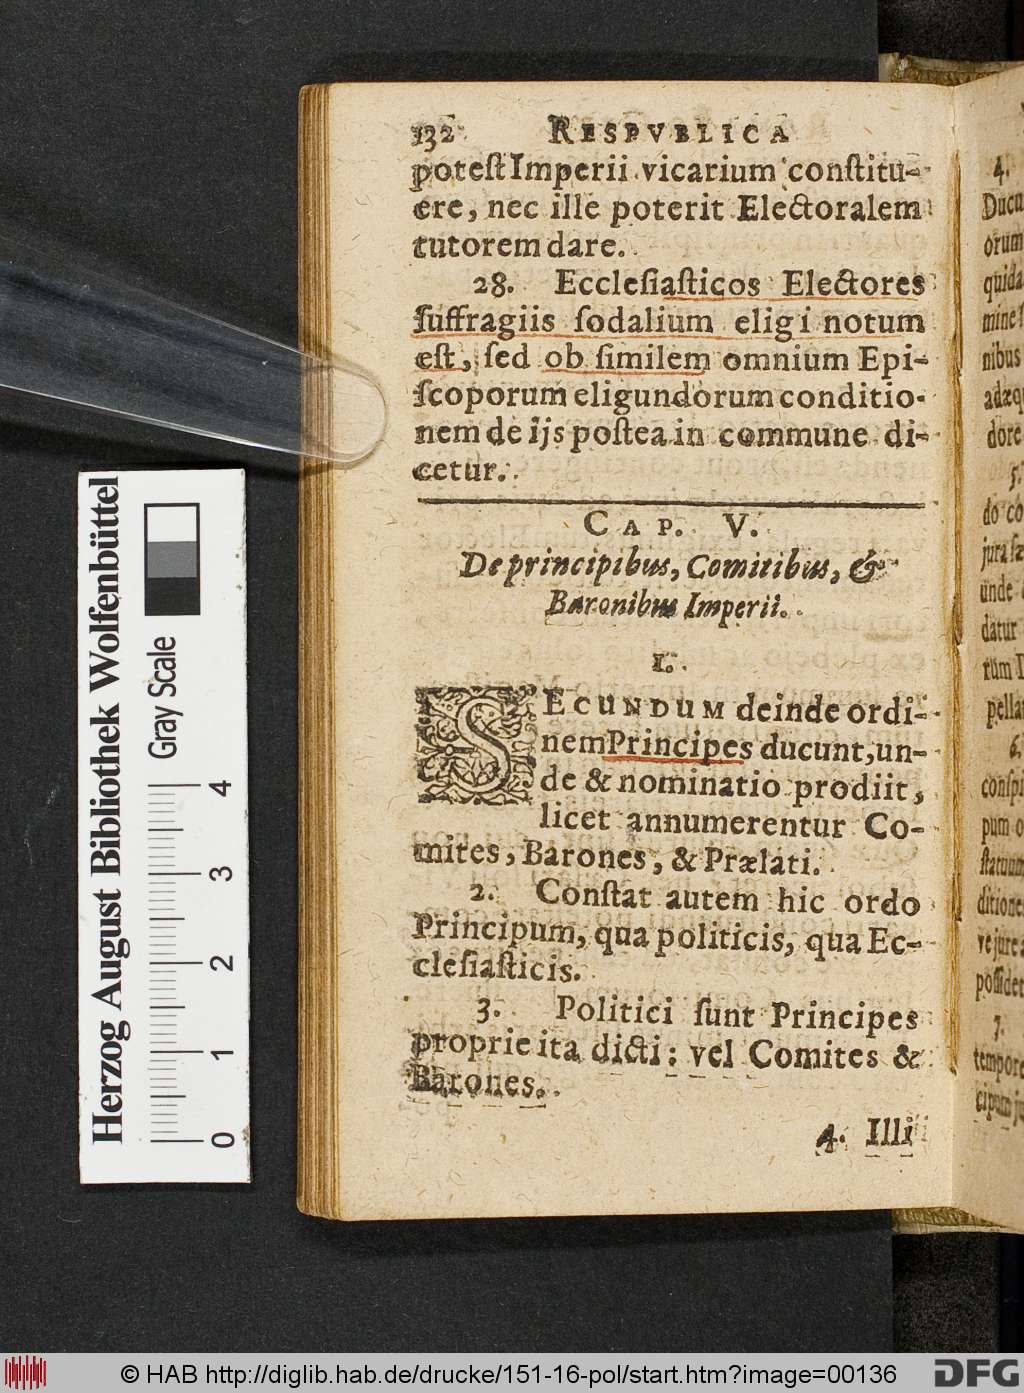 132 RESPVBLICA
potest Imperii vicarium constitu-
ere, nec ille poterit Electoralem
tutorem dare.
28. Ecclesiasticos Electores
suffragiis sodalium eligi notum
est, sed ob similem omnium Epi-
scoporum eligundorum conditio-
nem de ijs postea in commune di-
cetur.
CAP. V.
De principibus, Comitibus, &
Baronibus Imperii.
I.
SECUNDUM deinde ordi-
nem Principes ducunt, un-
de & nominatio prodiit,
licet annumerentur Co-
mites, Barones, & Prælati.
2. Constat autem hic ordo
Principum, qua politicis, qua Ec-
clesiasticis.
3. Politici sunt Principes
proprie ita dicti: vel Comites &
Barones.
4. Illi
4.
Ducu
orum
quida
mine
nibus
adæq
dore
5.
do co
jura
unde
datur
rum
pella
6.
consp
pum o
statuum
ditione
ve jure
possider
7.
tempore
cipum
Herzog August Bibliothek Wolfenbüttel
Gray Scale
0 1 2 3 4
© HAB http://diglib.hab.de/drucke/151-16-pol/start.htm?image=00136
DFG